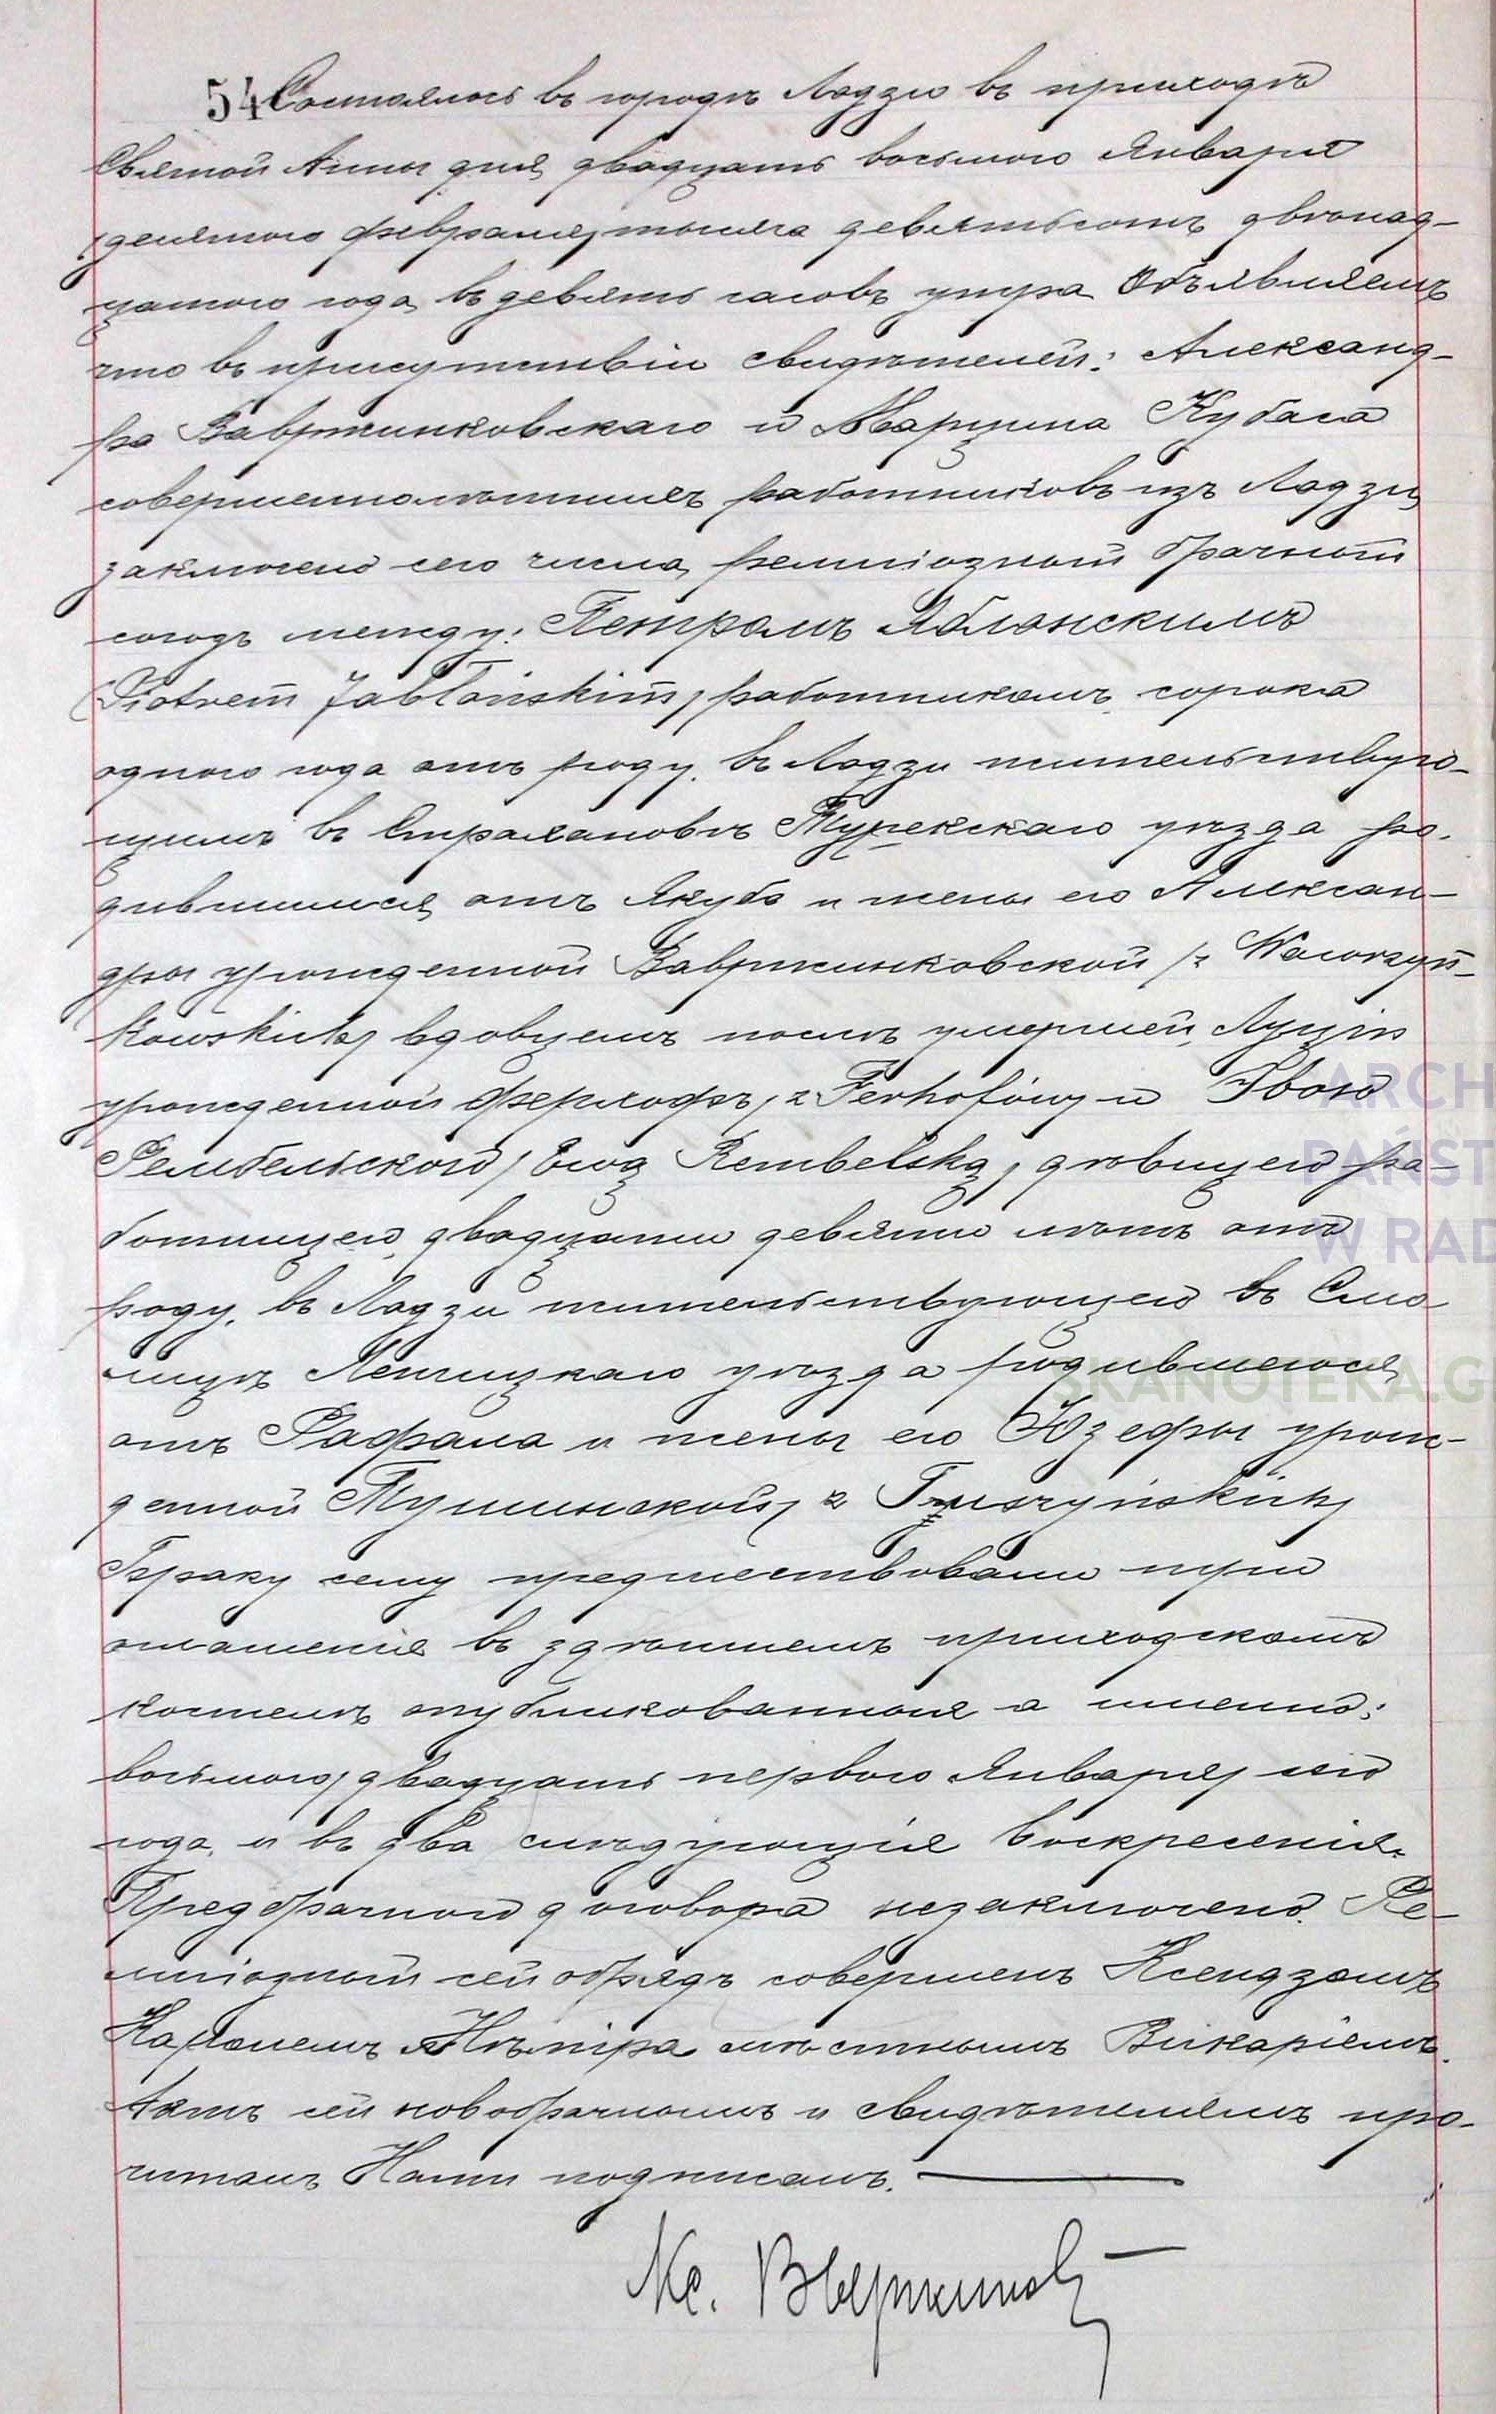 54 Состоялось въ городѣ Лодзи въ приходѣ
Святой Анны дня двадцать восьмого Января
/десятаго февраля/ тысяча девятьсотъ двѣнад-
цатого года въ девять часовъ утра. Объявляемъ
что въ присутствіи свидѣтелей: Александ-
ра Вавржинковскаго и Марцина Кубаса
совершеннолѣтнихъ работниковъ изъ Лодзи,
заключенъ сего числа религіозный брачный
союзъ между: Петромъ Яблонскимъ
/Piotrem Jabłońskim/ работникомъ сорока
одного года отъ роду, въ Лодзи жительствую-
щимъ въ Страхановѣ Турекскаго уѣзда ро-
дившимся, отъ Якуба и жены его Александ-
ры урожденной Вавржинковской /z Wawrzyń-
kowskich/ вдовцемъ послѣ умершей Луціи
урожденной Ферхофъ /z Ferhofów/ и Эвою
Рембельскою /Ewą Rembelską/ дѣвицею ра-
ботницею, двадцати девяти лѣтъ отъ
роду, въ Лодзи жительствующею въ
Ленчицкаго уѣзда родившеюся,
отъ Рафала и жены его Юзефы урож-
денной Тушинской / z Tuszyńskich/
Браку сему предшествовали три
оглашенія въ здѣшнемъ приходскомъ
костелѣ опубликованныя а именно:
восьмого /двадцать перваго Января/ сего
года, и въ два слѣдующія воскресенія.
Предбрачного договора незаключено. Ре-
лигіозный сей обрядъ совершенъ Ксендзомъ
Каролемъ мѣстнымъ Викаріемъ.
Актъ сей новобрачнымъ и свидѣтелямъ про-
читанъ Нами подписанъ.
Кс.
ARCH
PAŃST
W RAD
SKANOTEKA.G